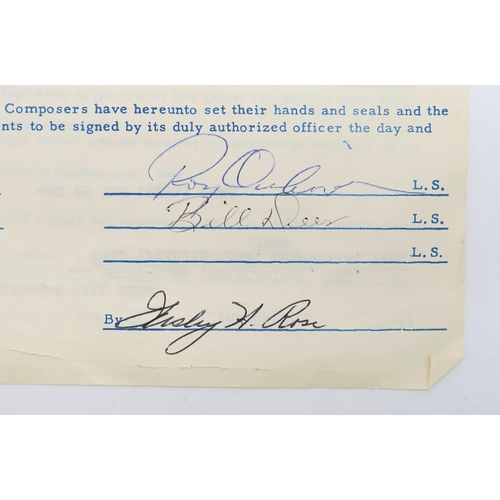 Composers have hereunto set their hands and seals and the
nts to be signed by its duly authorized officer the day and
Roy Orbison L.S.
Bill Dees L.S.
L.S.
By Wesley H. Rose